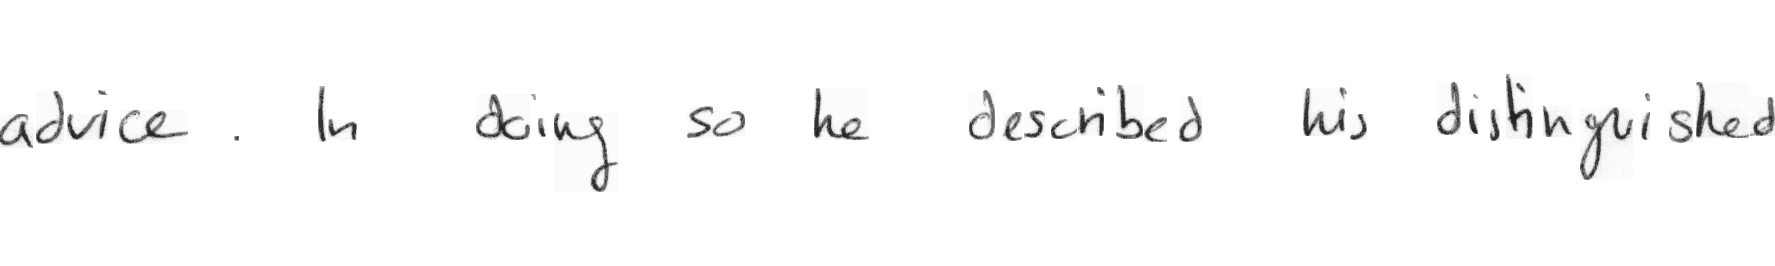 advice. In doing so he described his distinguished